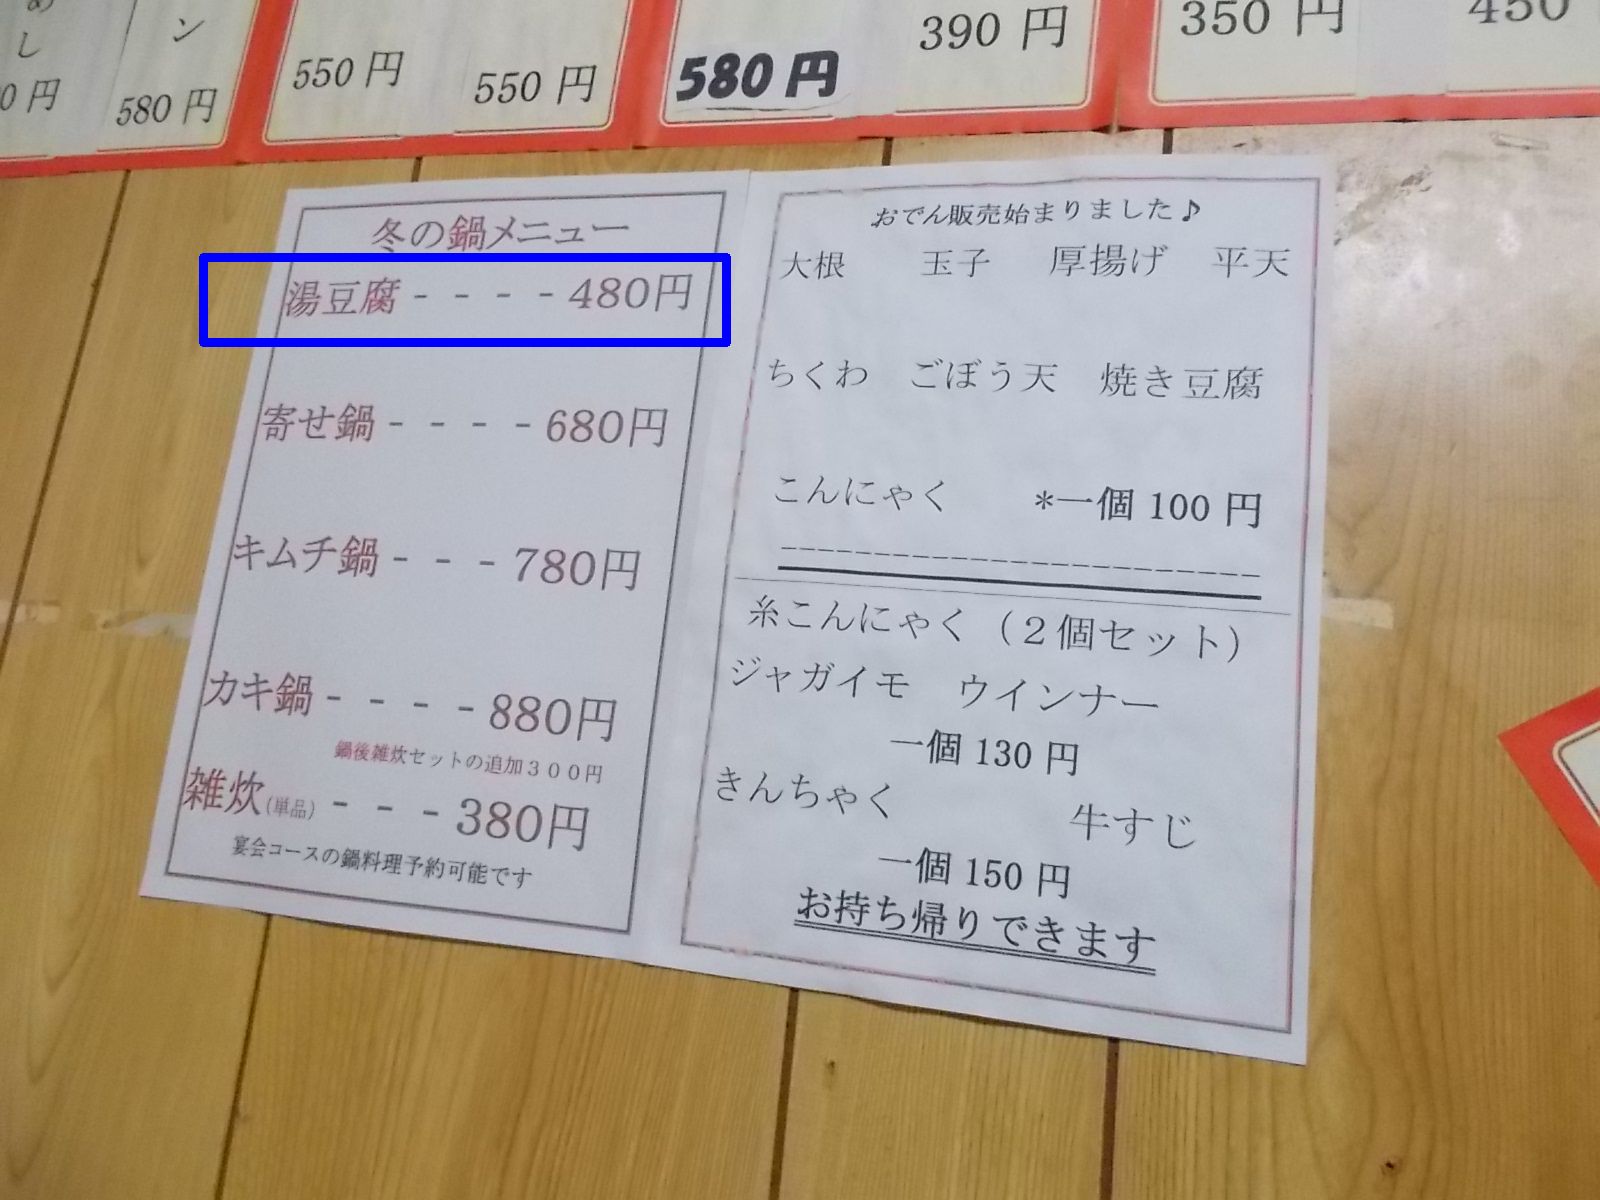 め
し
ン
0円
580円
550円
550円
580円
390円
350円
450
冬の鍋メニュー
湯豆腐----480円
寄せ鍋----680円
キムチ鍋---780円
カキ鍋----880円
鍋後雑炊セットの追加300円
雑炊(単品)---380円
宴会コースの鍋料理予約可能です
おでん販売始まりました♪
大根 玉子 厚揚げ 平天
ちくわ ごぼう天 焼き豆腐
こんにゃく *一個100円
糸こんにゃく(2個セット)
ジャガイモ ウインナー
一個130円
きんちゃく 牛すじ
一個150円
お持ち帰りできます